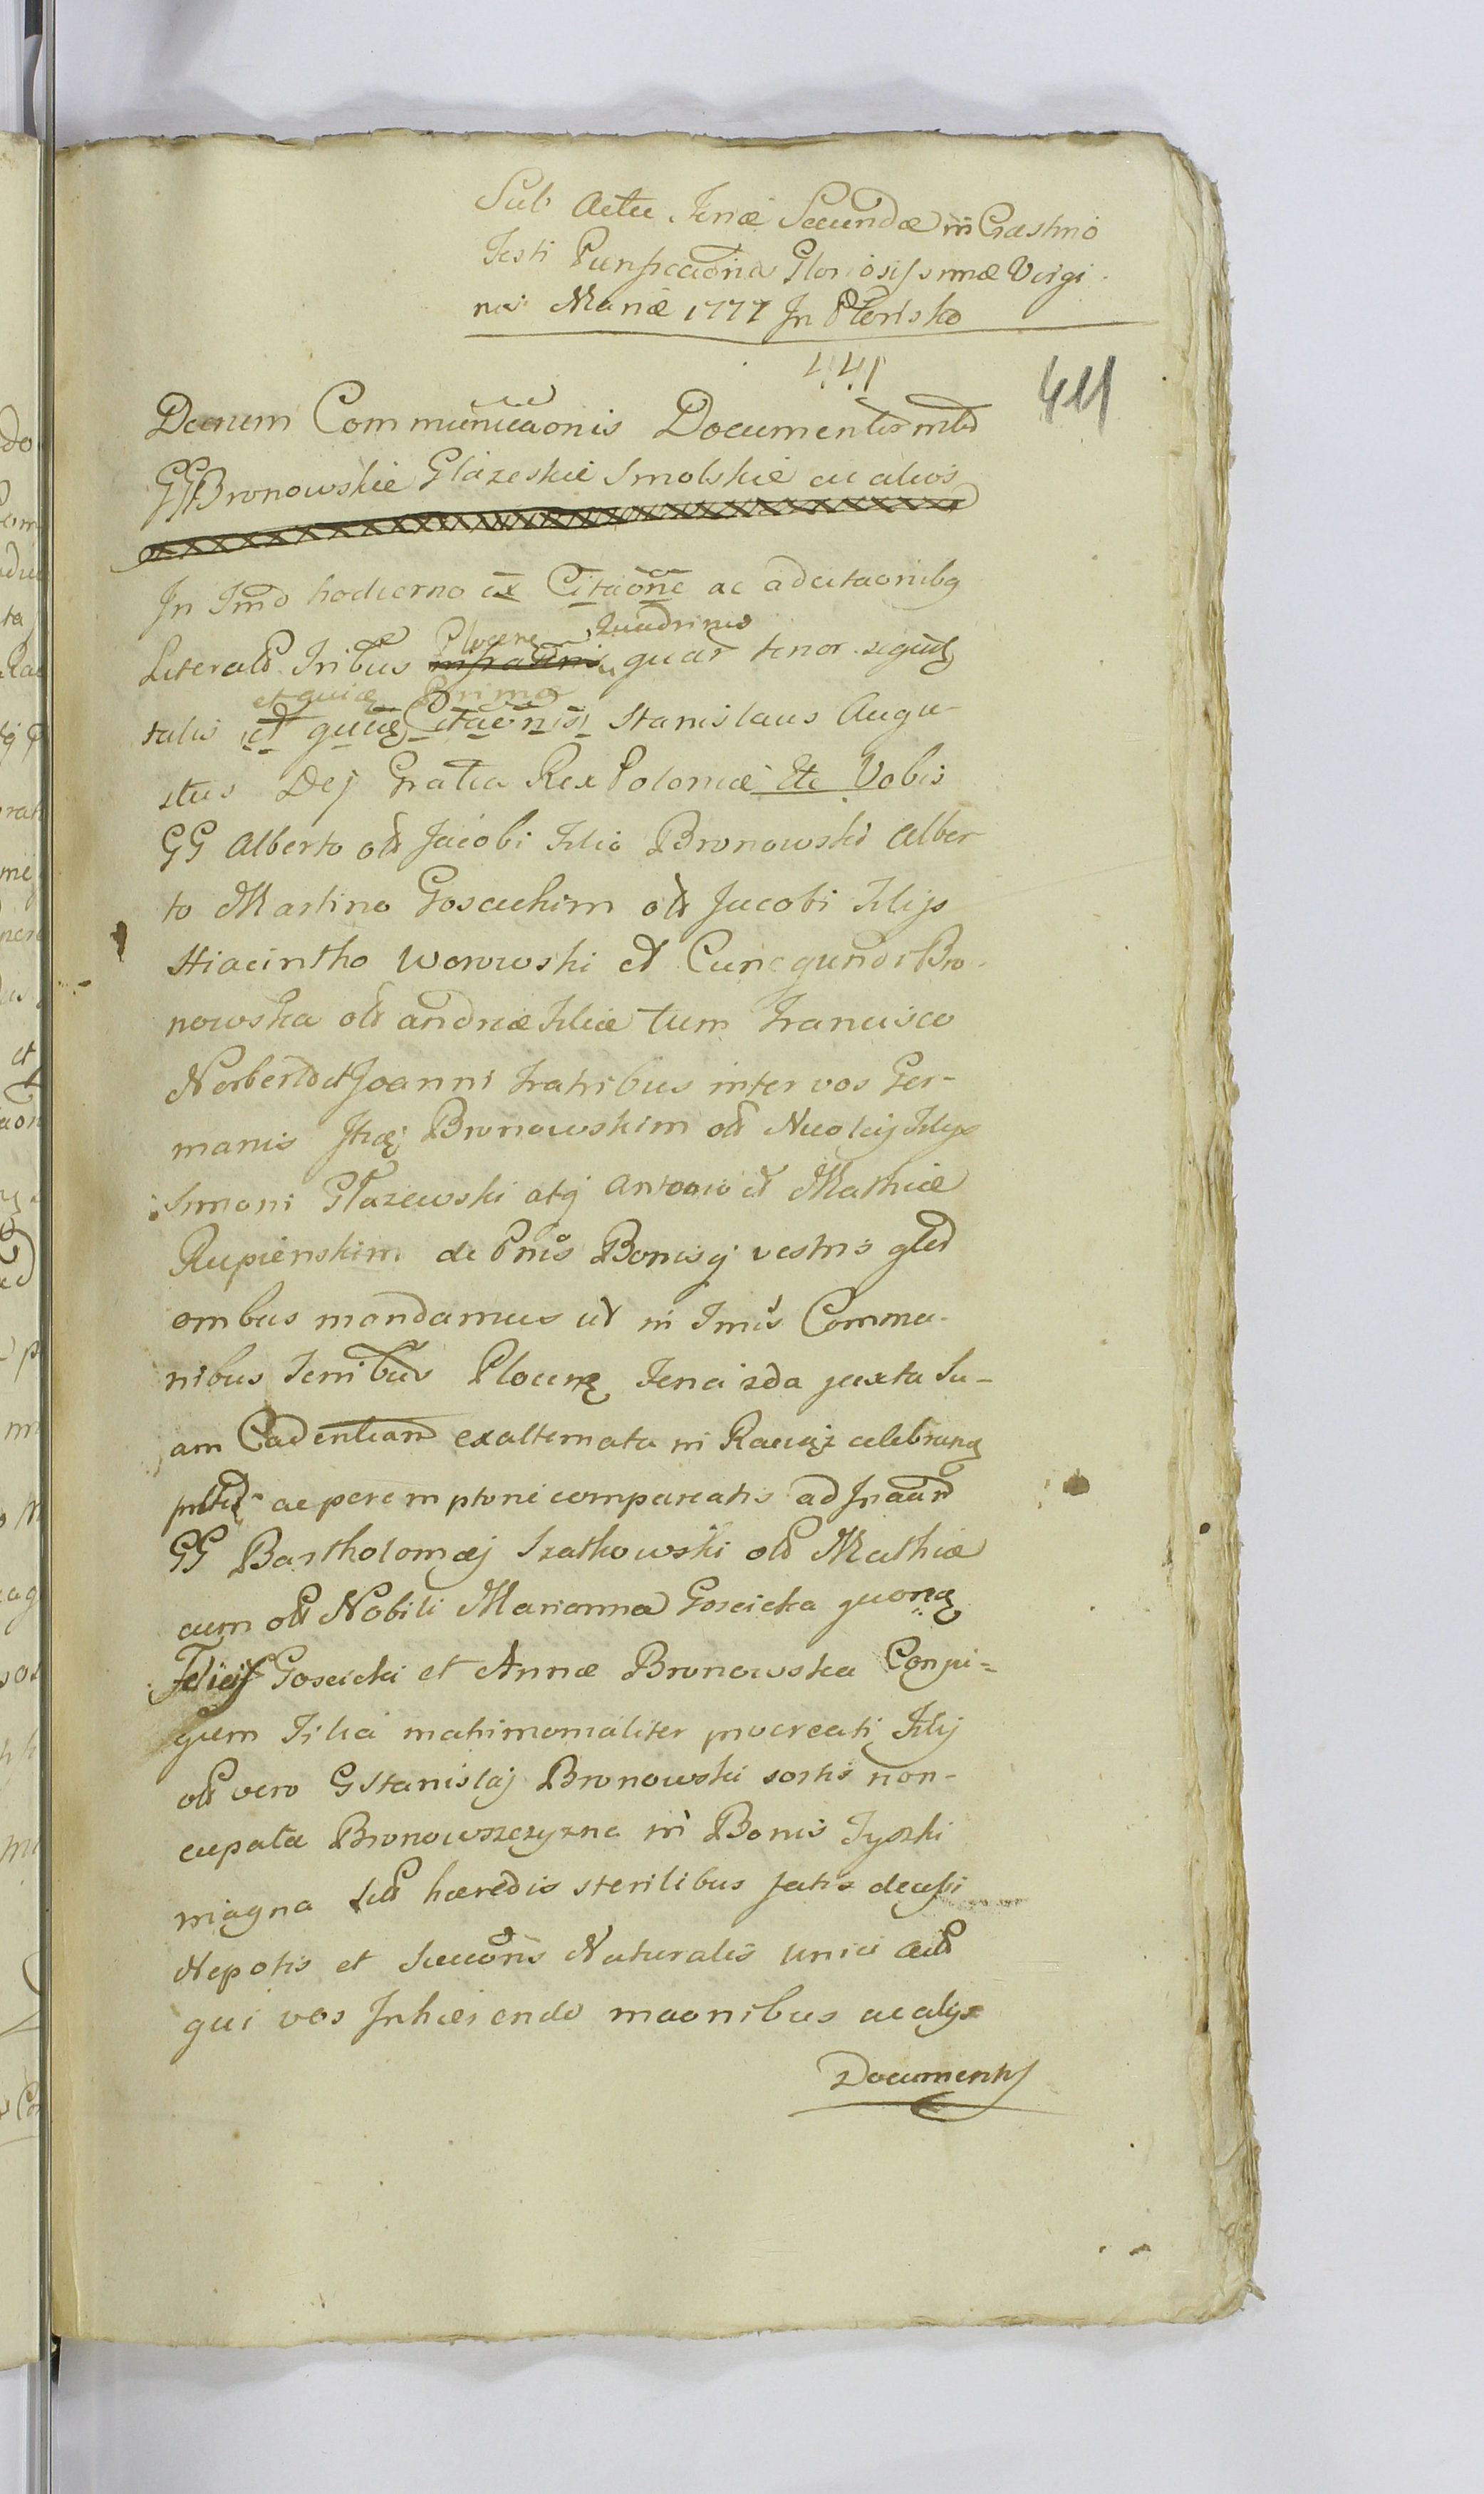 Sub Actu Feriæ Secundæ in Crastino
Festi Purificaonis Gloriosissimæ Virgi
nis Mariæ 1777 In Płońsko
441
411
Decrum Communicaonis Documentor intr
GG Bronowskie Głazeskie Smolskie ac alios
In Tmo hodierno ex Citaone ac adcitaonibq
Literalr Tribus Plocen Quadrinis quar tenor seqund
et quidq Primæ
talis et quidq Citaonis Stanislaus Augu-
stus Dej Gratia Rex Poloniæ Etc Vobis
GG Alberto olr Jacobi Filio Bronowski Alber
to Martino Goscickim olr Jacobi Filijs
Hiacintho Worowski et Cunegundi Bro-
nowska olr Andreæ Filiæ tum Francisco
Norberto et Joanni Fratribus inter vos Ger-
manis Itidq Bronowskim olr Nicolaj Filijs
Simoni Głazewski atq Antonio et Mathiæ
Rupienskim de Pnis Bonisq vestris glr
omibus mandamus ut in Tmis Commu-
nibus Terribus Plocens Feria 2da juxta Su-
am Cadentiam exalternata in Raciąż celebrand
pnltr ac peremptorie compareatis ad Inaam
GG Bartholomæj Szatkowski olr Mathiæ
cum olr Nobili Marianna Goscicka quond
Felicis Goscicki et Annæ Bronowska Conju=
gum Filia matrimonialiter procreati Filij
olr vero G Stanislaj Bronowski sortis non-
cupata Bronowszczyzna in Bonis Tyszki
magna sitr hæredis sterilibus fatis decessi
Nepotis et Succoris Naturalis unici Actr
qui vos Inhærendo maonibus ac alijs
Documentis